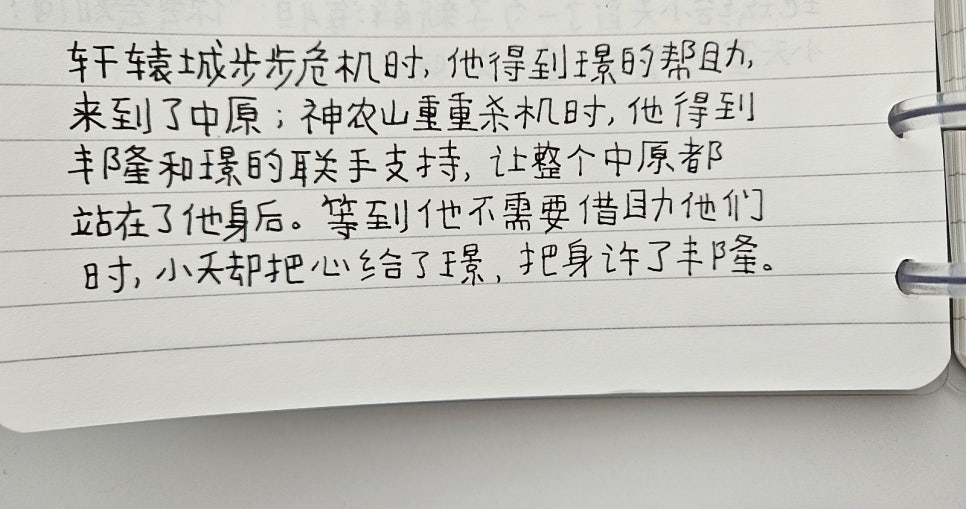 轩辕城步步危机时，他得到璟的帮助，
来到了中原；神农山重重杀机时，他得到
丰隆和璟的联手支持，让整个中原都
站在了他身后。等到他不需要借助他们
时，小夭却把心给了璟，把身许了丰隆。